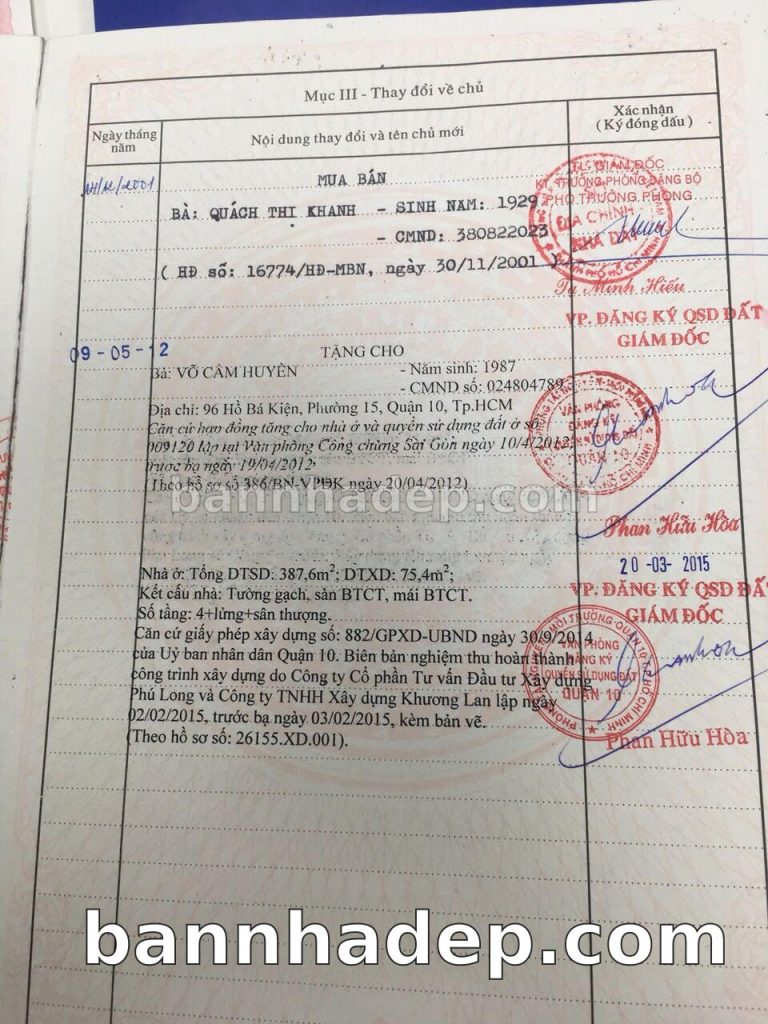 Mục III - Thay đổi về chủ
Ngày tháng năm
Nội dung thay đổi và tên chủ mới
Xác nhận
(Ký đóng dấu)
MUA BÁN
BÀ: QUÁCH THỊ KHANH - SINH NĂM: 1929
- CMND: 380822023
( HĐ số: 16774/HĐ-MBN, ngày 30/11/2001 )
TL. GIÁM ĐỐC
KT. TRƯỞNG PHÒNG ĐĂNG BỘ
PHÓ TRƯỞNG PHÒNG
ĐỊA CHÍNH
NHÀ ĐẤT
Tạ Minh Hiếu
09-05-12
TẶNG CHO
Bà: VÕ CẨM HUYÊN - Năm sinh: 1987
- CMND số: 024804789
Địa chỉ: 96 Hồ Bá Kiện, Phường 15, Quận 10, Tp.HCM
Căn cứ hợp đồng tặng cho nhà ở và quyền sử dụng đất ở số
009120 lập tại Văn phòng Công chứng Sài Gòn ngày 10/4/2012,
trước bạ ngày 19/04/2012
(Theo hồ sơ số 386/BN-VPĐK ngày 20/04/2012)
VP. ĐĂNG KÝ QSD ĐẤT
GIÁM ĐỐC
VĂN PHÒNG
ĐĂNG KÝ
QUẬN 10
Phan Hữu Hòa
bannhadep.com
Nhà ở: Tổng DTSD: 387,6m²; DTXD: 75,4m²;
Kết cấu nhà: Tường gạch, sàn BTCT, mái BTCT.
Số tầng: 4+lửng+sân thượng.
Căn cứ giấy phép xây dựng số: 882/GPXD-UBND ngày 30/9/2014
của Uỷ ban nhân dân Quận 10. Biên bản nghiệm thu hoàn thành
công trình xây dựng do Công ty Cổ phần Tư vấn Đầu tư Xây dựng
Phú Long và Công ty TNHH Xây dựng Khương Lan lập ngày
02/02/2015, trước bạ ngày 03/02/2015, kèm bản vẽ.
(Theo hồ sơ số: 26155.XD.001).
20-03-2015
VP. ĐĂNG KÝ QSD ĐẤ
GIÁM ĐỐC
VĂN PHÒNG
ĐĂNG KÝ
QUYỀN SỬ DỤNG ĐẤT
QUẬN 10
Phan Hữu Hòa
bannhadep.com